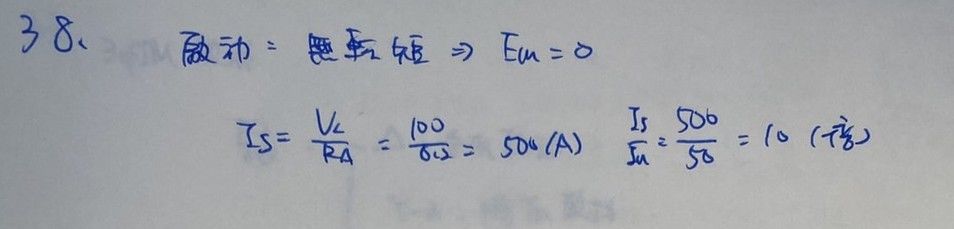 38、 啟动: 無転矩 ⇒ Em = 0
Is = VL/RA = 100/0.2 = 500(A) Is/In = 500/50 = 10 (倍)